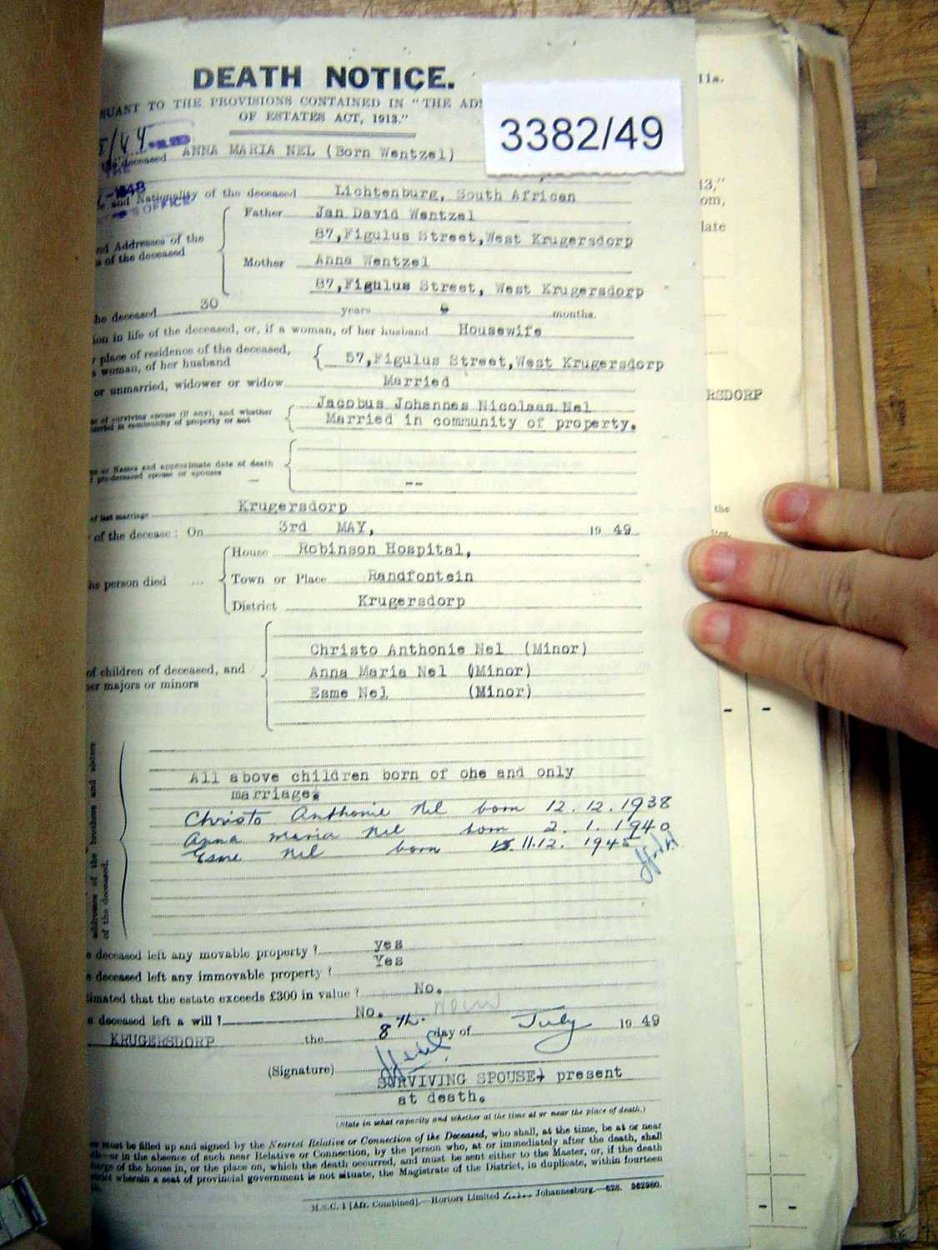 DEATH NOTICE.
SUANT TO THE PROVISIONS CONTAINED IN "THE AD
OF ESTATES ACT, 1913."
3382/49
deceased ANNA MARIA NEL (Born Wentzel)
and Nationality of the deceased Lichtenburg, South African
OFFICE
Father Jan David Wentzel
87,Figulus Street,West Krugersdorp
nd Addresses of the
s of the deceased
Mother Anna Wentzel
87,Figulus Street, West Krugersdorp
he deceased 30 years months.
ion in life of the deceased, or, if a woman, of her husband Housewife
r place of residence of the deceased,
a woman, of her husband
57,Figulus Street,West Krugersdorp
or unmarried, widower or widow Married
me of surviving spouse (if any), and whether
married in community of property or not
Jacobus Johannes Nicolaas Nel
Married in community of property.
me or Names and approximate date of death
f pre-deceased spouse or spouses
--
of last marriage Krugersdorp
of the decease : On 3rd MAY, 19 49
House Robinson Hospital,
he person died ... Town or Place Randfontein
District Krugersdorp
of children of deceased, and
her majors or minors
Christo Anthonie Nel (Minor)
Anna Maria Nel (Minor)
Esme Nel (Minor)
addresses of the brothers and sisters
of the deceased.
All above children born of one and only
marriage.
Christo Anthonie Nel born 12.12.1938
Anna Maria Nel born 2.1.1940
Esme Nel born 11.12.1945
s deceased left any movable property ? yes
s deceased left any immovable property ? Yes
timated that the estate exceeds £300 in value ? No.
s deceased left a will ? No.
KRUGERSDORP the 8th. day of July 19 49
(Signature)
SURVIVING SPOUSE, present
at death.
(State in what capacity and whether at the time at or near the place of death.)
must be filled up and signed by the Nearest Relative or Connection of the Deceased, who shall, at the time, be at or near
or in the absence of such near Relative or Connection, by the person who, at or immediately after the death, shall
harge of the house in, or the place on, which the death occurred, and must be sent either to the Master, or, if the death
trict wherein a seat of provincial government is not situate, the Magistrate of the District, in duplicate, within fourteen
M.S.C. 1 [Afr. Combined].—Hortors Limited Johannesburg.—628. 362980.
11a.
13,"
om,
late
RSDORP
the